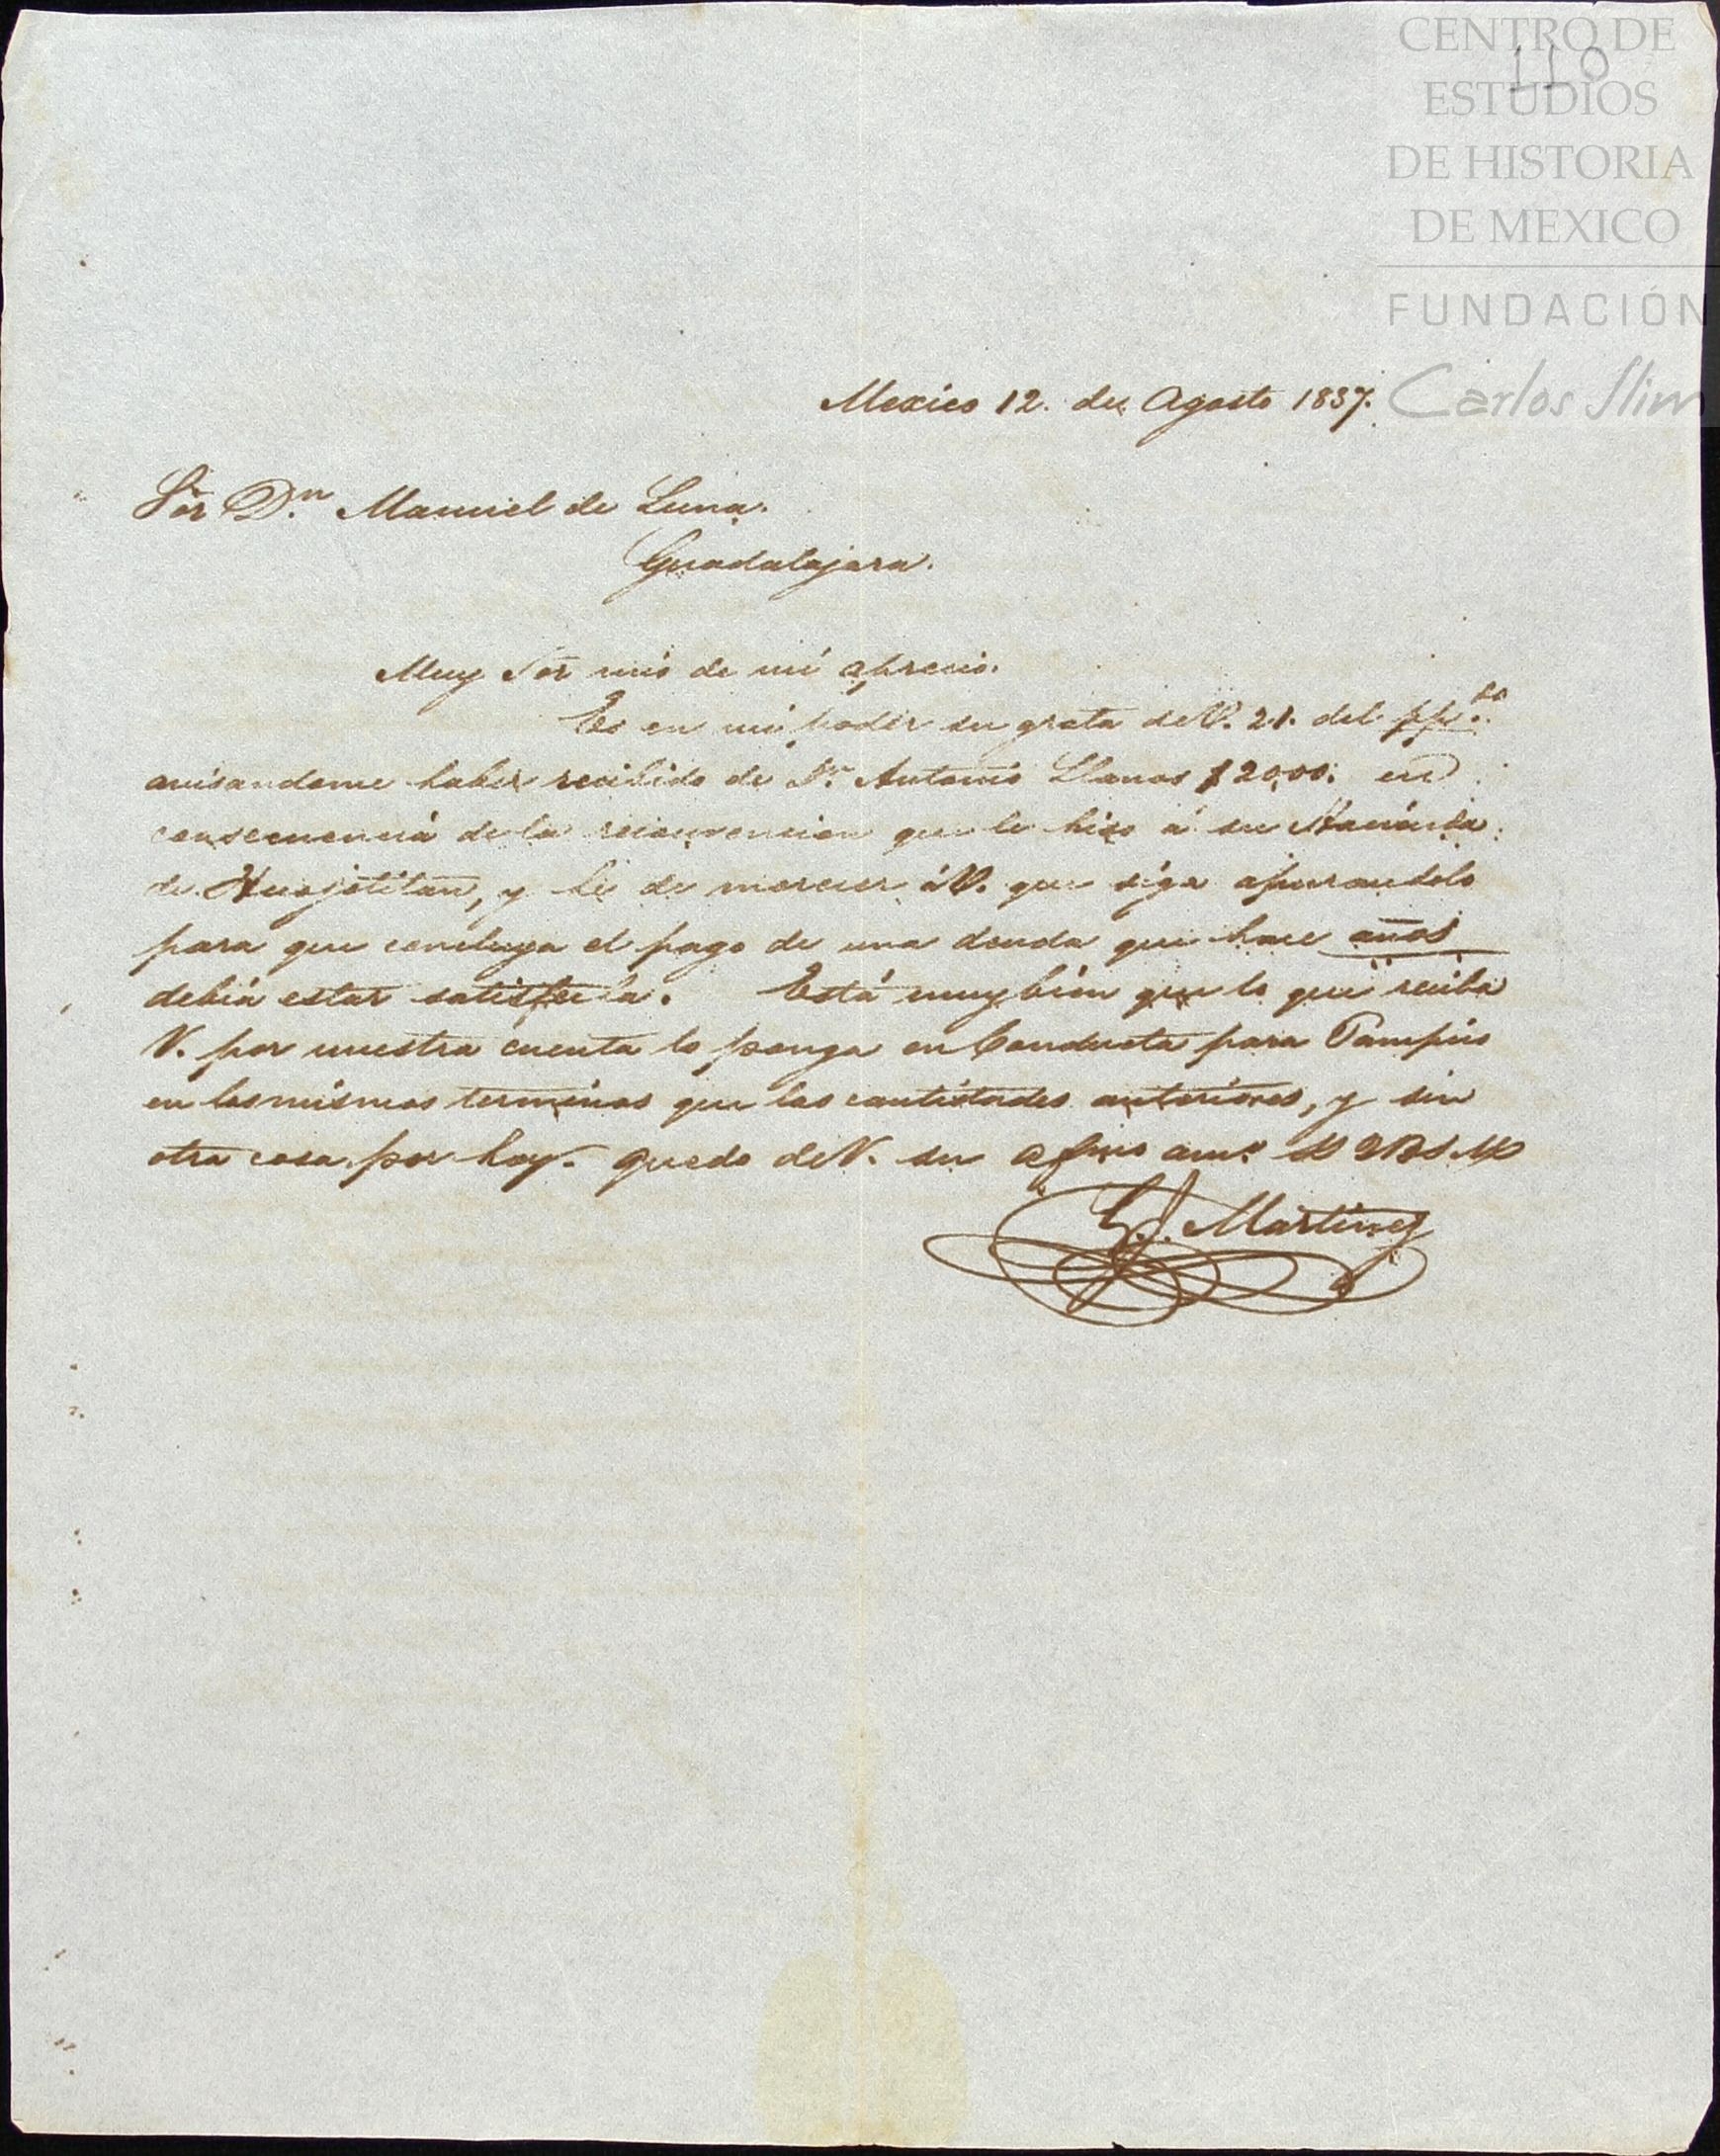 CENTRO DE
110
ESTUDIOS
DE HISTORIA
DE MEXICO
FUNDACIÓN
Carlos Slim
Mexico 12. de Agosto 1837.
Sõr D.n Manuel de Luna.
Guadalajara.
Muy Sõr mio de mi aprecio.
Es en mi poder su grata de V. 21. del pp.do
avisandome haber recibido de D.n Antonio Llanos $2000: en
consecuencia de la reconvencion que le hizo á su Hacienda
de Huejotitan, y he de merecer á V. que siga apurandolo
para que concluya el pago de una deuda que hace años
debia estar satisfecha. Está muy bien que lo que reciba
V. por nuestra cuenta lo ponga en Conducta para Tampico
en los mismos terminos que las cantidades anteriores, y sin
otra cosa por hoy. quedo de V. su afmo am.o S Q B S M
Martinez